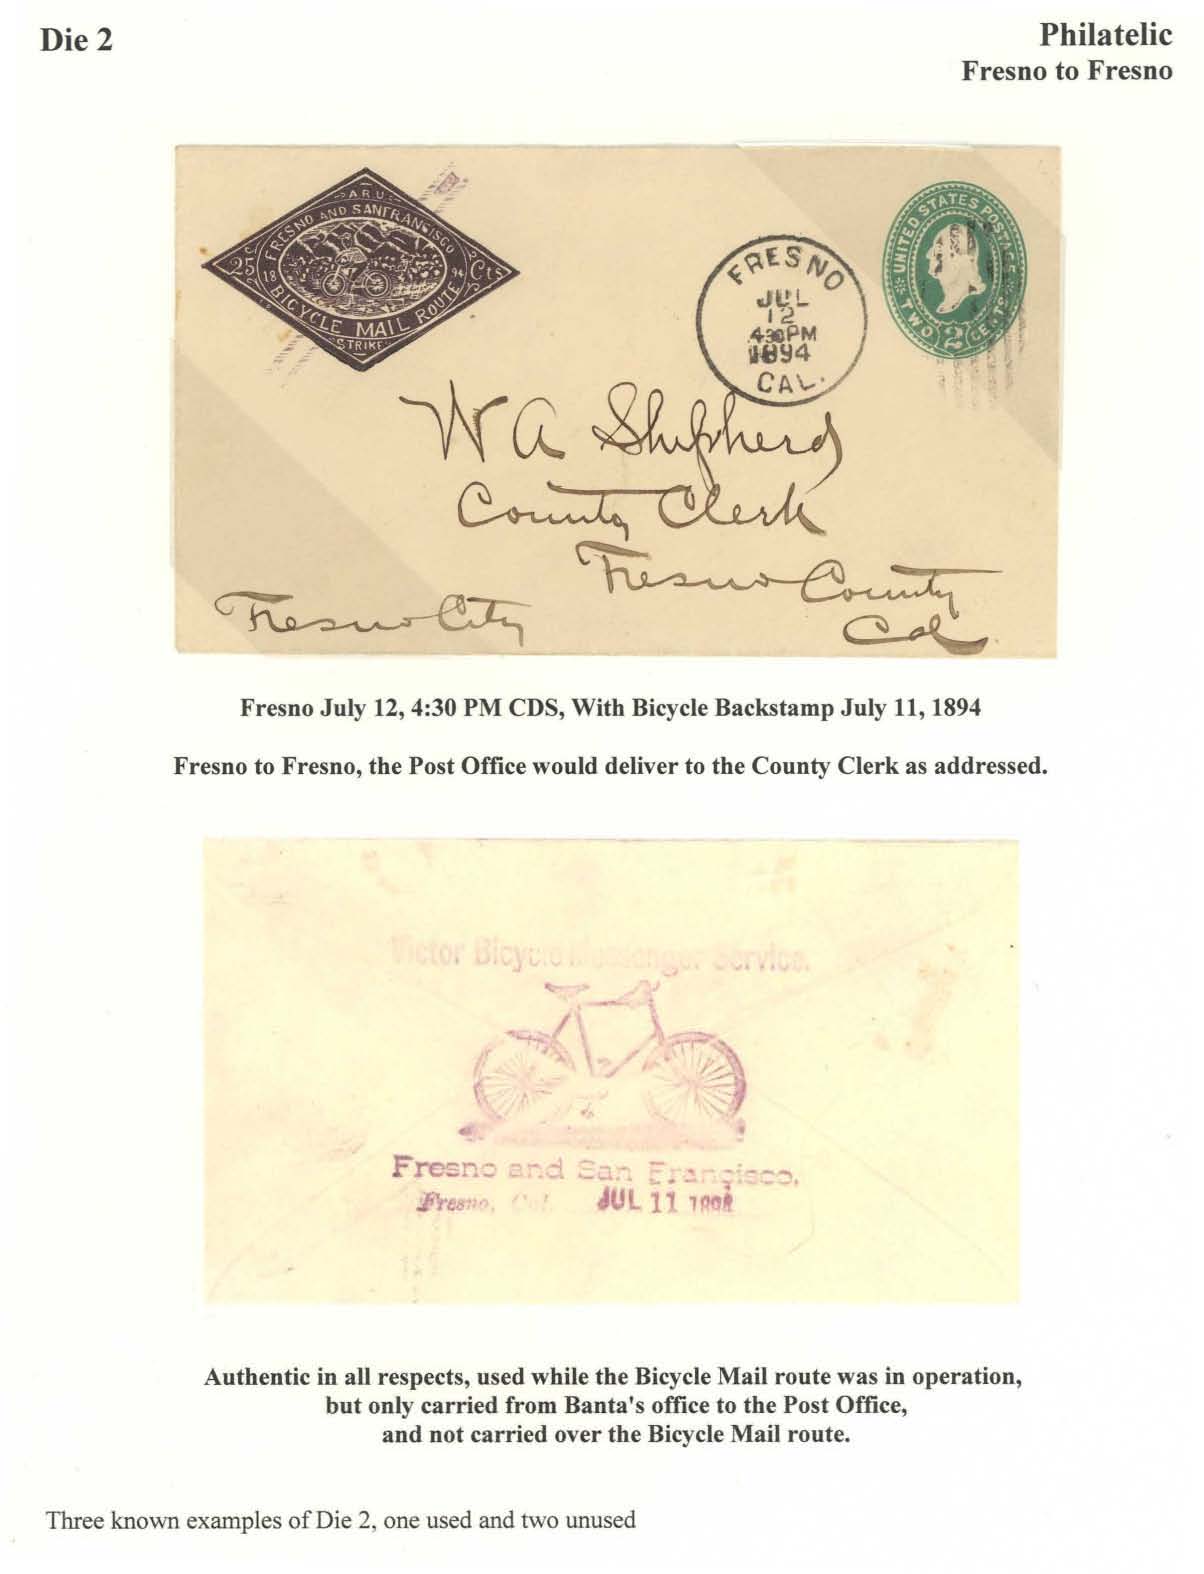 Die 2
Philatelic
Fresno to Fresno
A.R.U.
FRESNO AND SANFRANSISCO
25 Cts
18 94
BICYCLE MAIL ROUTE
STRIKE
FRESNO
JUL
12
430PM
1894
CAL.
UNITED STATES POSTAGE
TWO 2 CENTS
W A Shipherd
County Clerk
Fresno County
Fresno City
Cal
Fresno July 12, 4:30 PM CDS, With Bicycle Backstamp July 11, 1894
Fresno to Fresno, the Post Office would deliver to the County Clerk as addressed.
Victor Bicycle Messenger Service.
Fresno and San Francisco.
Fresno, Cal. JUL 11 1894
Authentic in all respects, used while the Bicycle Mail route was in operation,
but only carried from Banta's office to the Post Office,
and not carried over the Bicycle Mail route.
Three known examples of Die 2, one used and two unused